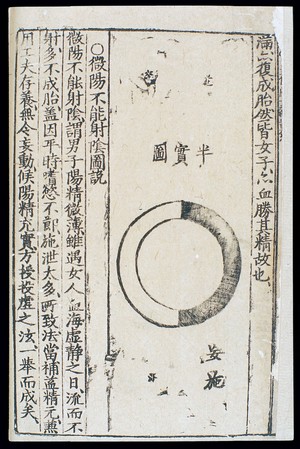 滿亦復成胎然皆女子以血勝其精故也
半實圖
妄施
○微陽不能射陰圖說
微陽不能射陰謂男子陽精微薄雖遇女人血海虛靜之日流而不
射多不成胎蓋因平時嗜慾不節施泄太多所致法當補益精元兼
用工夫存養無令妄動候陽精充實方授投虛之法一舉而成矣